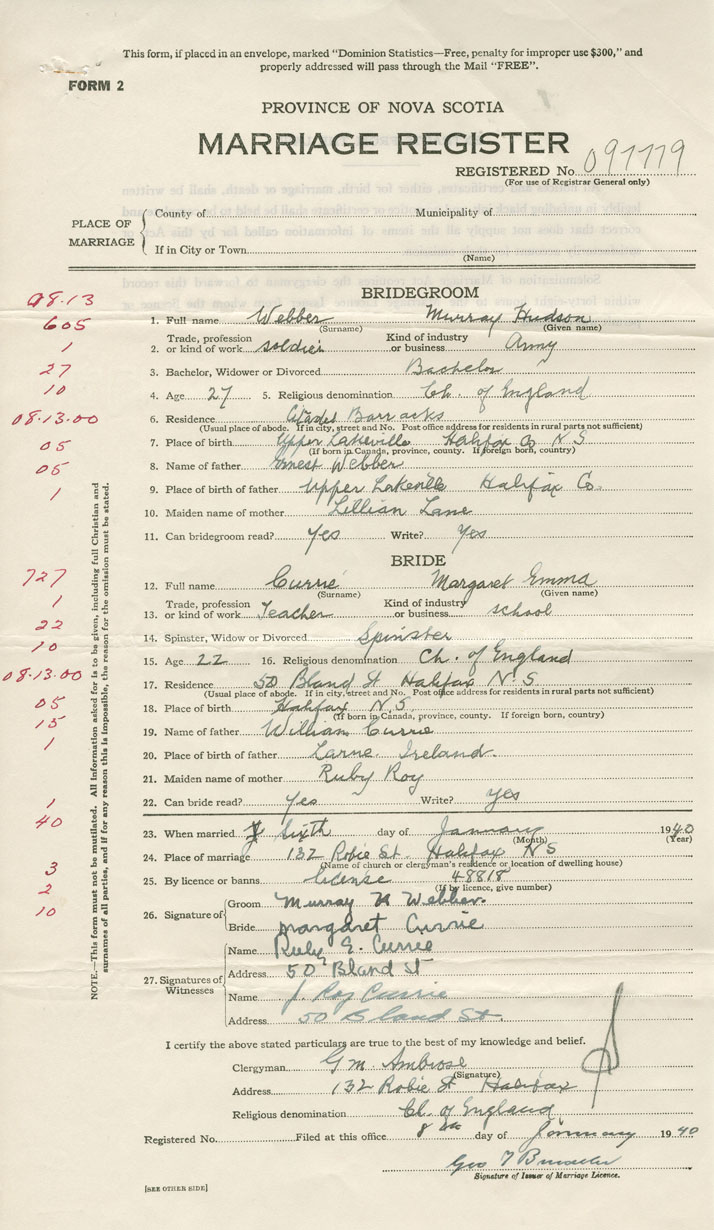 This form, if placed in an envelope, marked "Dominion Statistics—Free, penalty for improper use $300," and
properly addressed will pass through the Mail "FREE".
FORM 2
PROVINCE OF NOVA SCOTIA
MARRIAGE REGISTER
REGISTERED No. 097779
(For use of Registrar General only)
PLACE OF MARRIAGE
County of Municipality of
If in City or Town
(Name)
08.13
BRIDEGROOM
605
1. Full name Webber Murray Hudson
(Surname) (Given name)
1
2. Trade, profession or kind of work soldier Kind of industry or business Army
27
3. Bachelor, Widower or Divorced Bachelor
10
4. Age 27 5. Religious denomination Ch. of England
08.13.00
6. Residence Citadel Barracks
(Usual place of abode. If in city, street and No. Post office address for residents in rural parts not sufficient)
05
7. Place of birth Upper Lakeville Halifax Co N S
(If born in Canada, province, county. If foreign born, country)
05
8. Name of father Ernest Webber
1
9. Place of birth of father Upper Lakeville Halifax Co.
10. Maiden name of mother Lillian Lane
11. Can bridegroom read? Yes Write? Yes
BRIDE
727
12. Full name Currie Margaret Emma
(Surname) (Given name)
1
13. Trade, profession or kind of work Teacher Kind of industry or business school
22
14. Spinster, Widow or Divorced Spinster
10
15. Age 22 16. Religious denomination Ch. of England
08.13.00
17. Residence 50 Bland St Halifax N.S
(Usual place of abode. If in city, street and No. Post office address for residents in rural parts not sufficient)
05
18. Place of birth Halifax N.S.
(If born in Canada, province, county. If foreign born, country)
15
19. Name of father William Currie
1
20. Place of birth of father Larne Ireland.
21. Maiden name of mother Ruby Roy
1
22. Can bride read? Yes Write? yes
40
23. When married Sixth day of January 1940
(Month) (Year)
24. Place of marriage 132 Robie St. Halifax N S
(Name of church or clergyman's residence or location of dwelling house)
3
25. By licence or banns license 48818
(If by licence, give number)
2
10
26. Signature of
Groom Murray H Webber.
Bride Margaret Currie
27. Signatures of Witnesses
Name Ruby E. Currie
Address 50 Bland St
Name J. Roy Currie
Address 50 Bland St.
NOTE.—This form must not be mutilated. All information asked for is to be given, including full Christian and
surnames of all parties, and if for any reason this is impossible, the reason for the omission must be stated.
I certify the above stated particulars are true to the best of my knowledge and belief.
Clergyman G M. Ambrose
(Signature)
Address 132 Robie St Halifax
Religious denomination Ch. of England
Registered No. Filed at this office 8th day of January 1940
Geo T
Signature of Issuer of Marriage Licence.
[SEE OTHER SIDE]